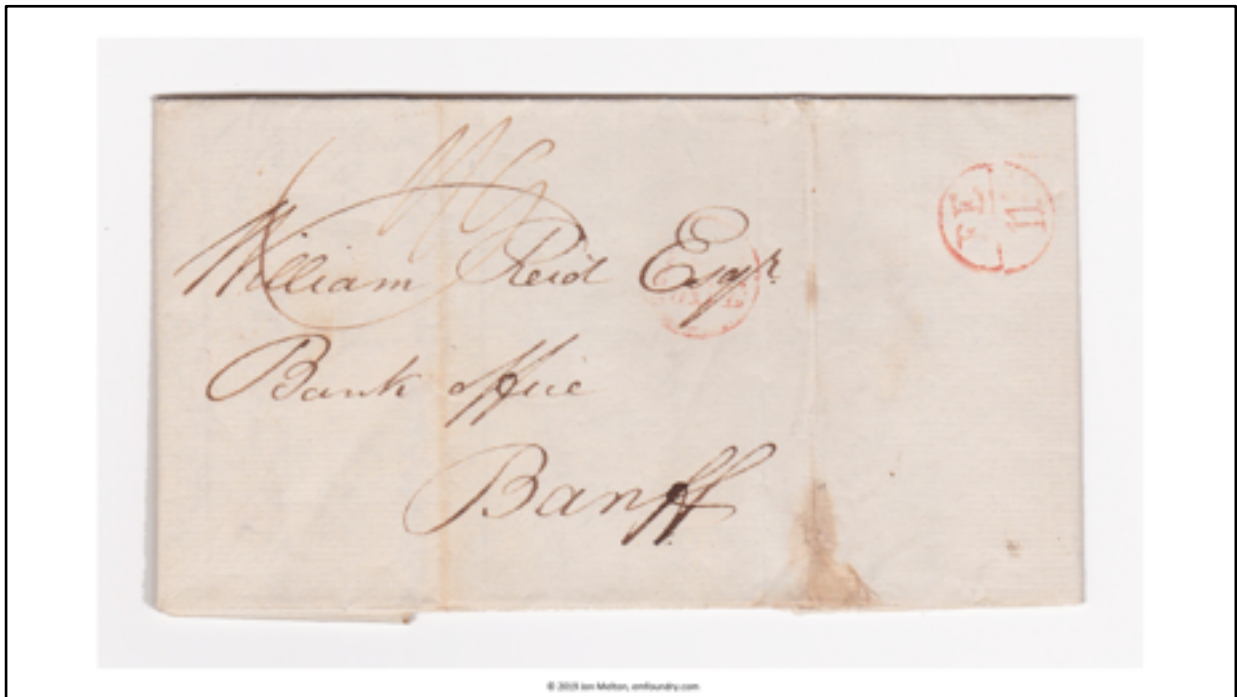 William Reid Esqr.
Bank office
Banff
FE
11
© 2019 Jon Melton, emfoundry.com